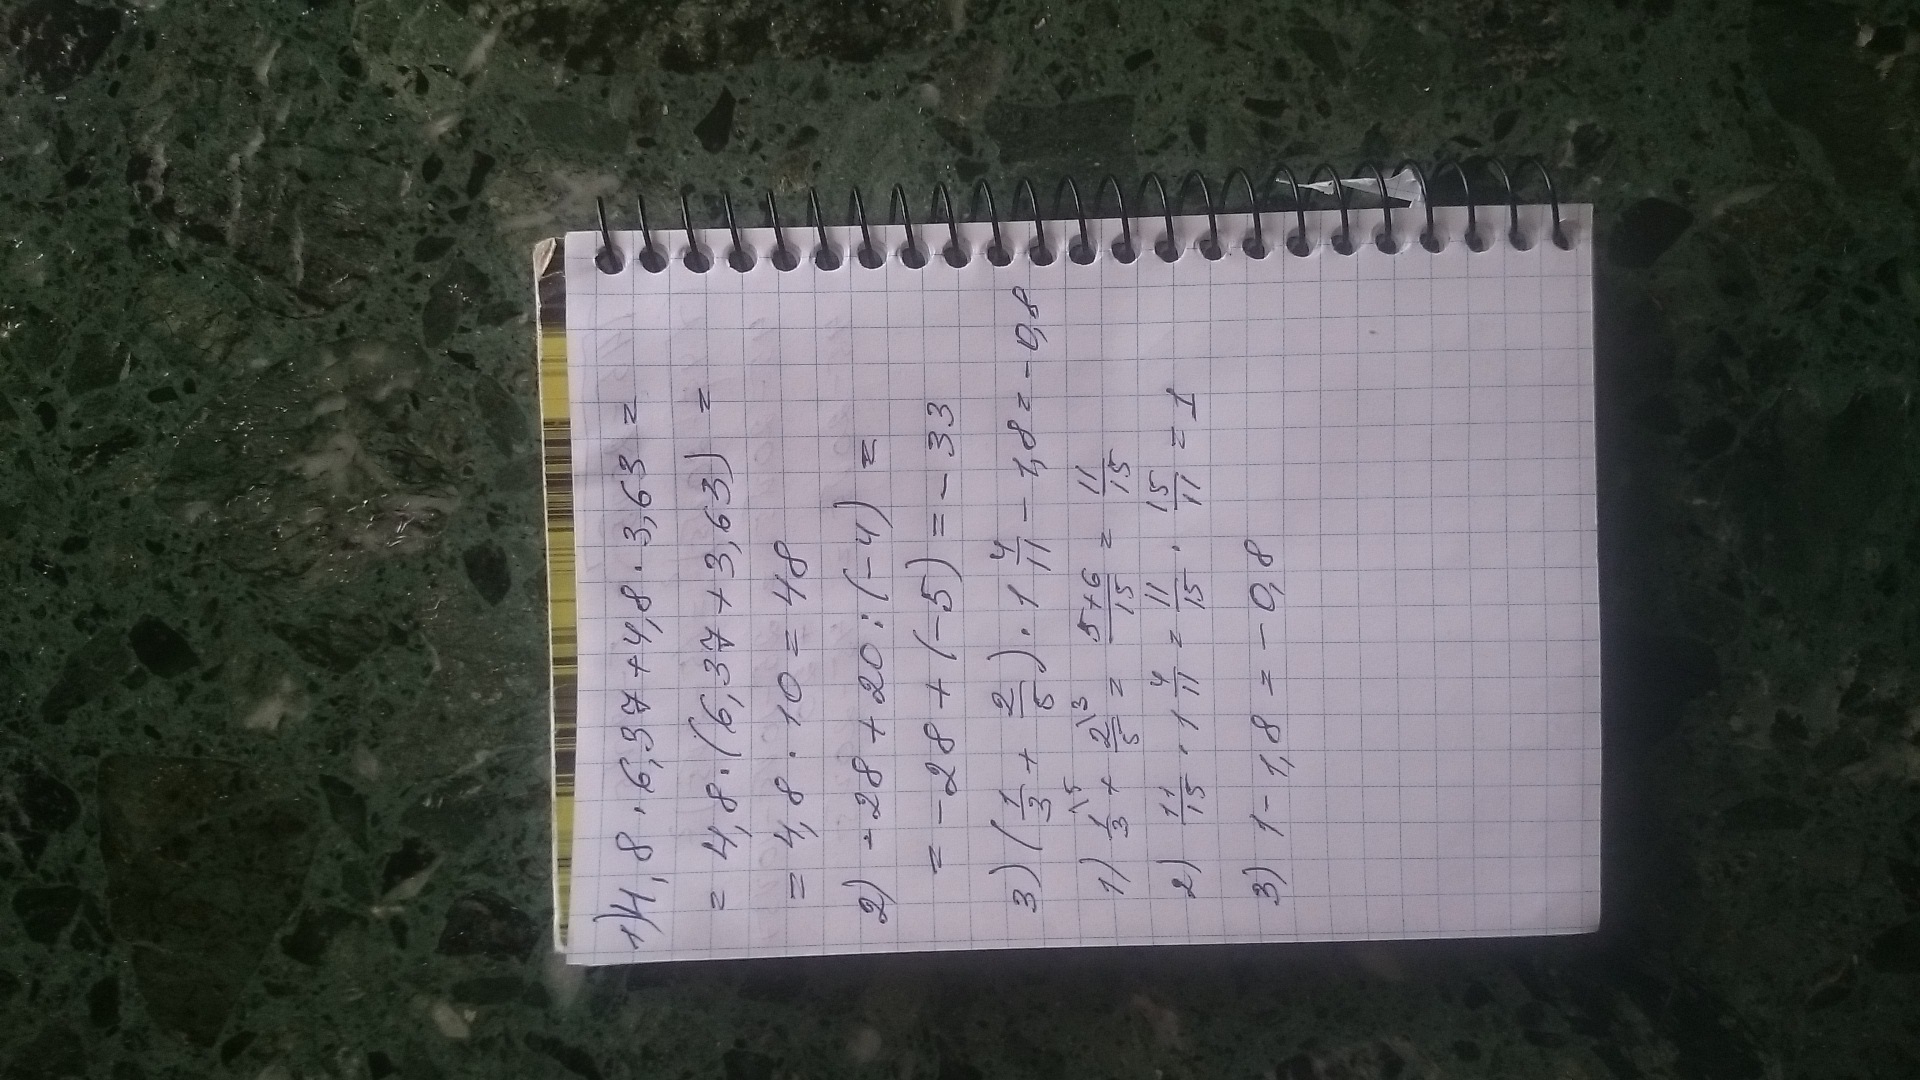 1) 4,8 · 6,37 + 4,8 · 3,63 =
= 4,8 · (6,37 + 3,63) =
= 4,8 · 10 = 48
2) -28 + 20 : (-4) =
= -28 + (-5) = -33
3) (1/3 + 2/5) · 1 4/11 - 1,8 = -0,8
1) 1/3 \5 + 2/5 \3 = 5+6/15 = 11/15
2) 11/15 · 1 4/11 = 11/15 · 15/11 = 1
3) 1 - 1,8 = -0,8